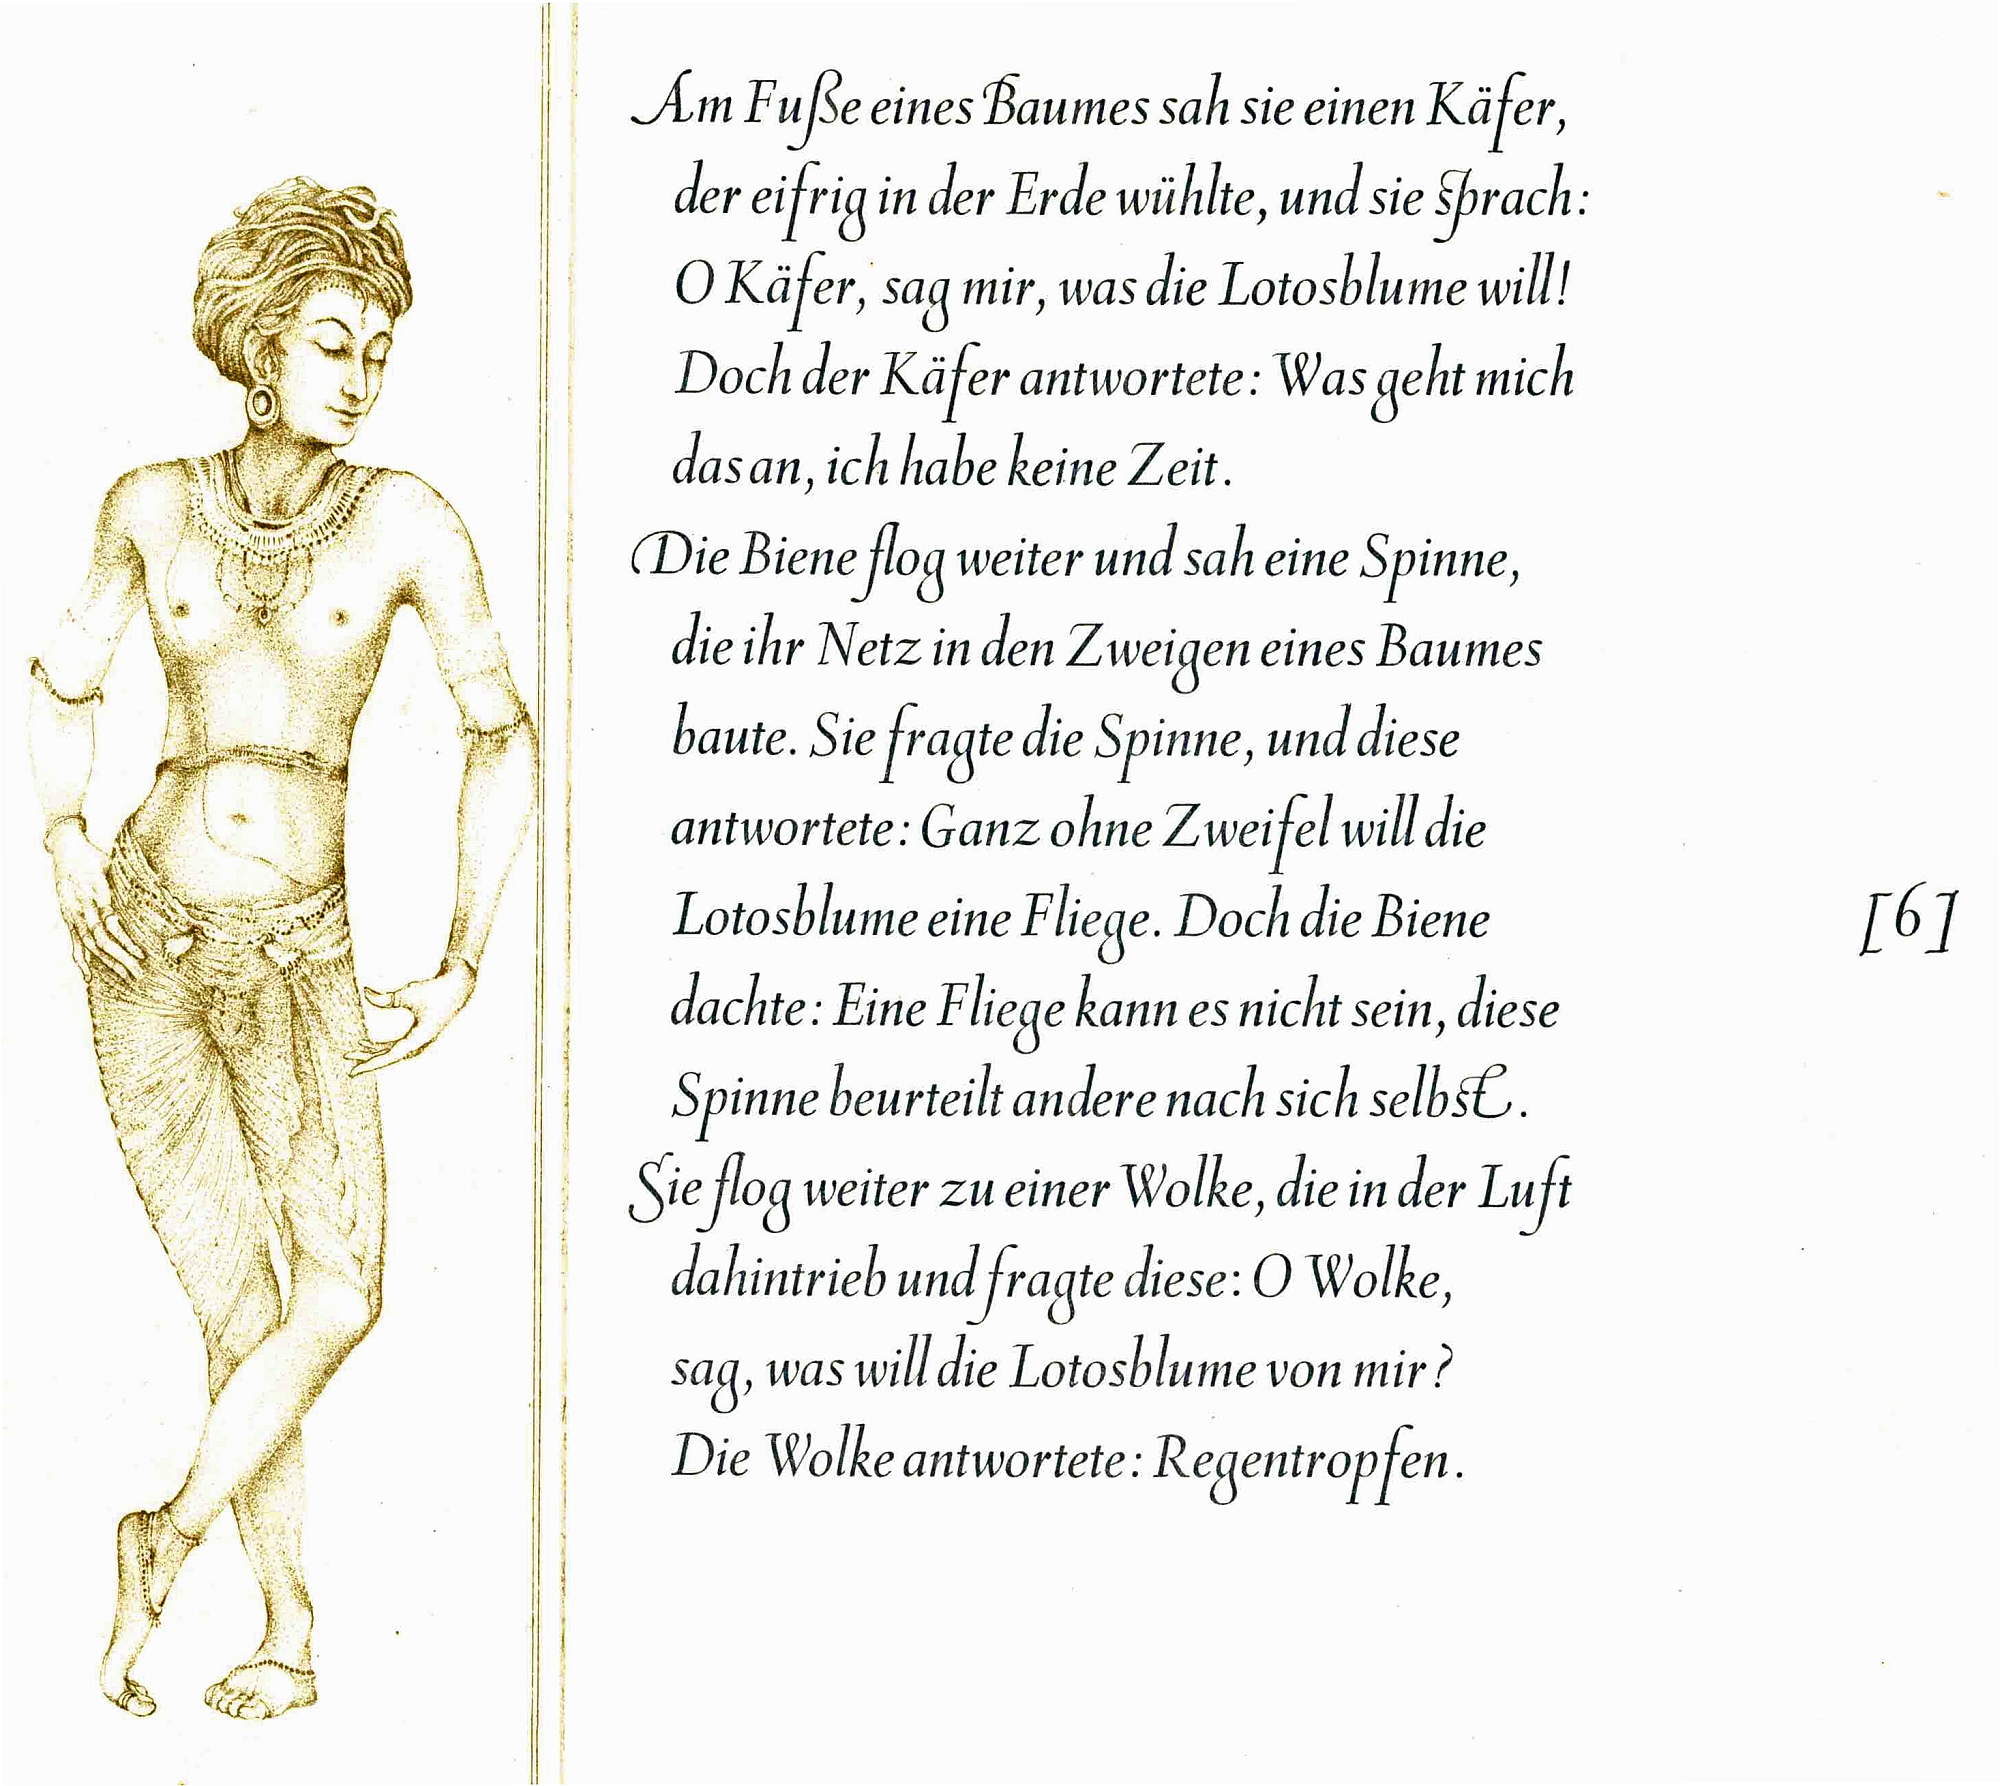 Am Fuße eines Baumes sah sie einen Käfer,
der eifrig in der Erde wühlte, und sie sprach:
O Käfer, sag mir, was die Lotosblume will!
Doch der Käfer antwortete: Was geht mich
das an, ich habe keine Zeit.
Die Biene flog weiter und sah eine Spinne,
die ihr Netz in den Zweigen eines Baumes
baute. Sie fragte die Spinne, und diese
antwortete: Ganz ohne Zweifel will die
Lotosblume eine Fliege. Doch die Biene
[6]
dachte: Eine Fliege kann es nicht sein, diese
Spinne beurteilt andere nach sich selbst.
Sie flog weiter zu einer Wolke, die in der Luft
dahintrieb und fragte diese: O Wolke,
sag, was will die Lotosblume von mir?
Die Wolke antwortete: Regentropfen.